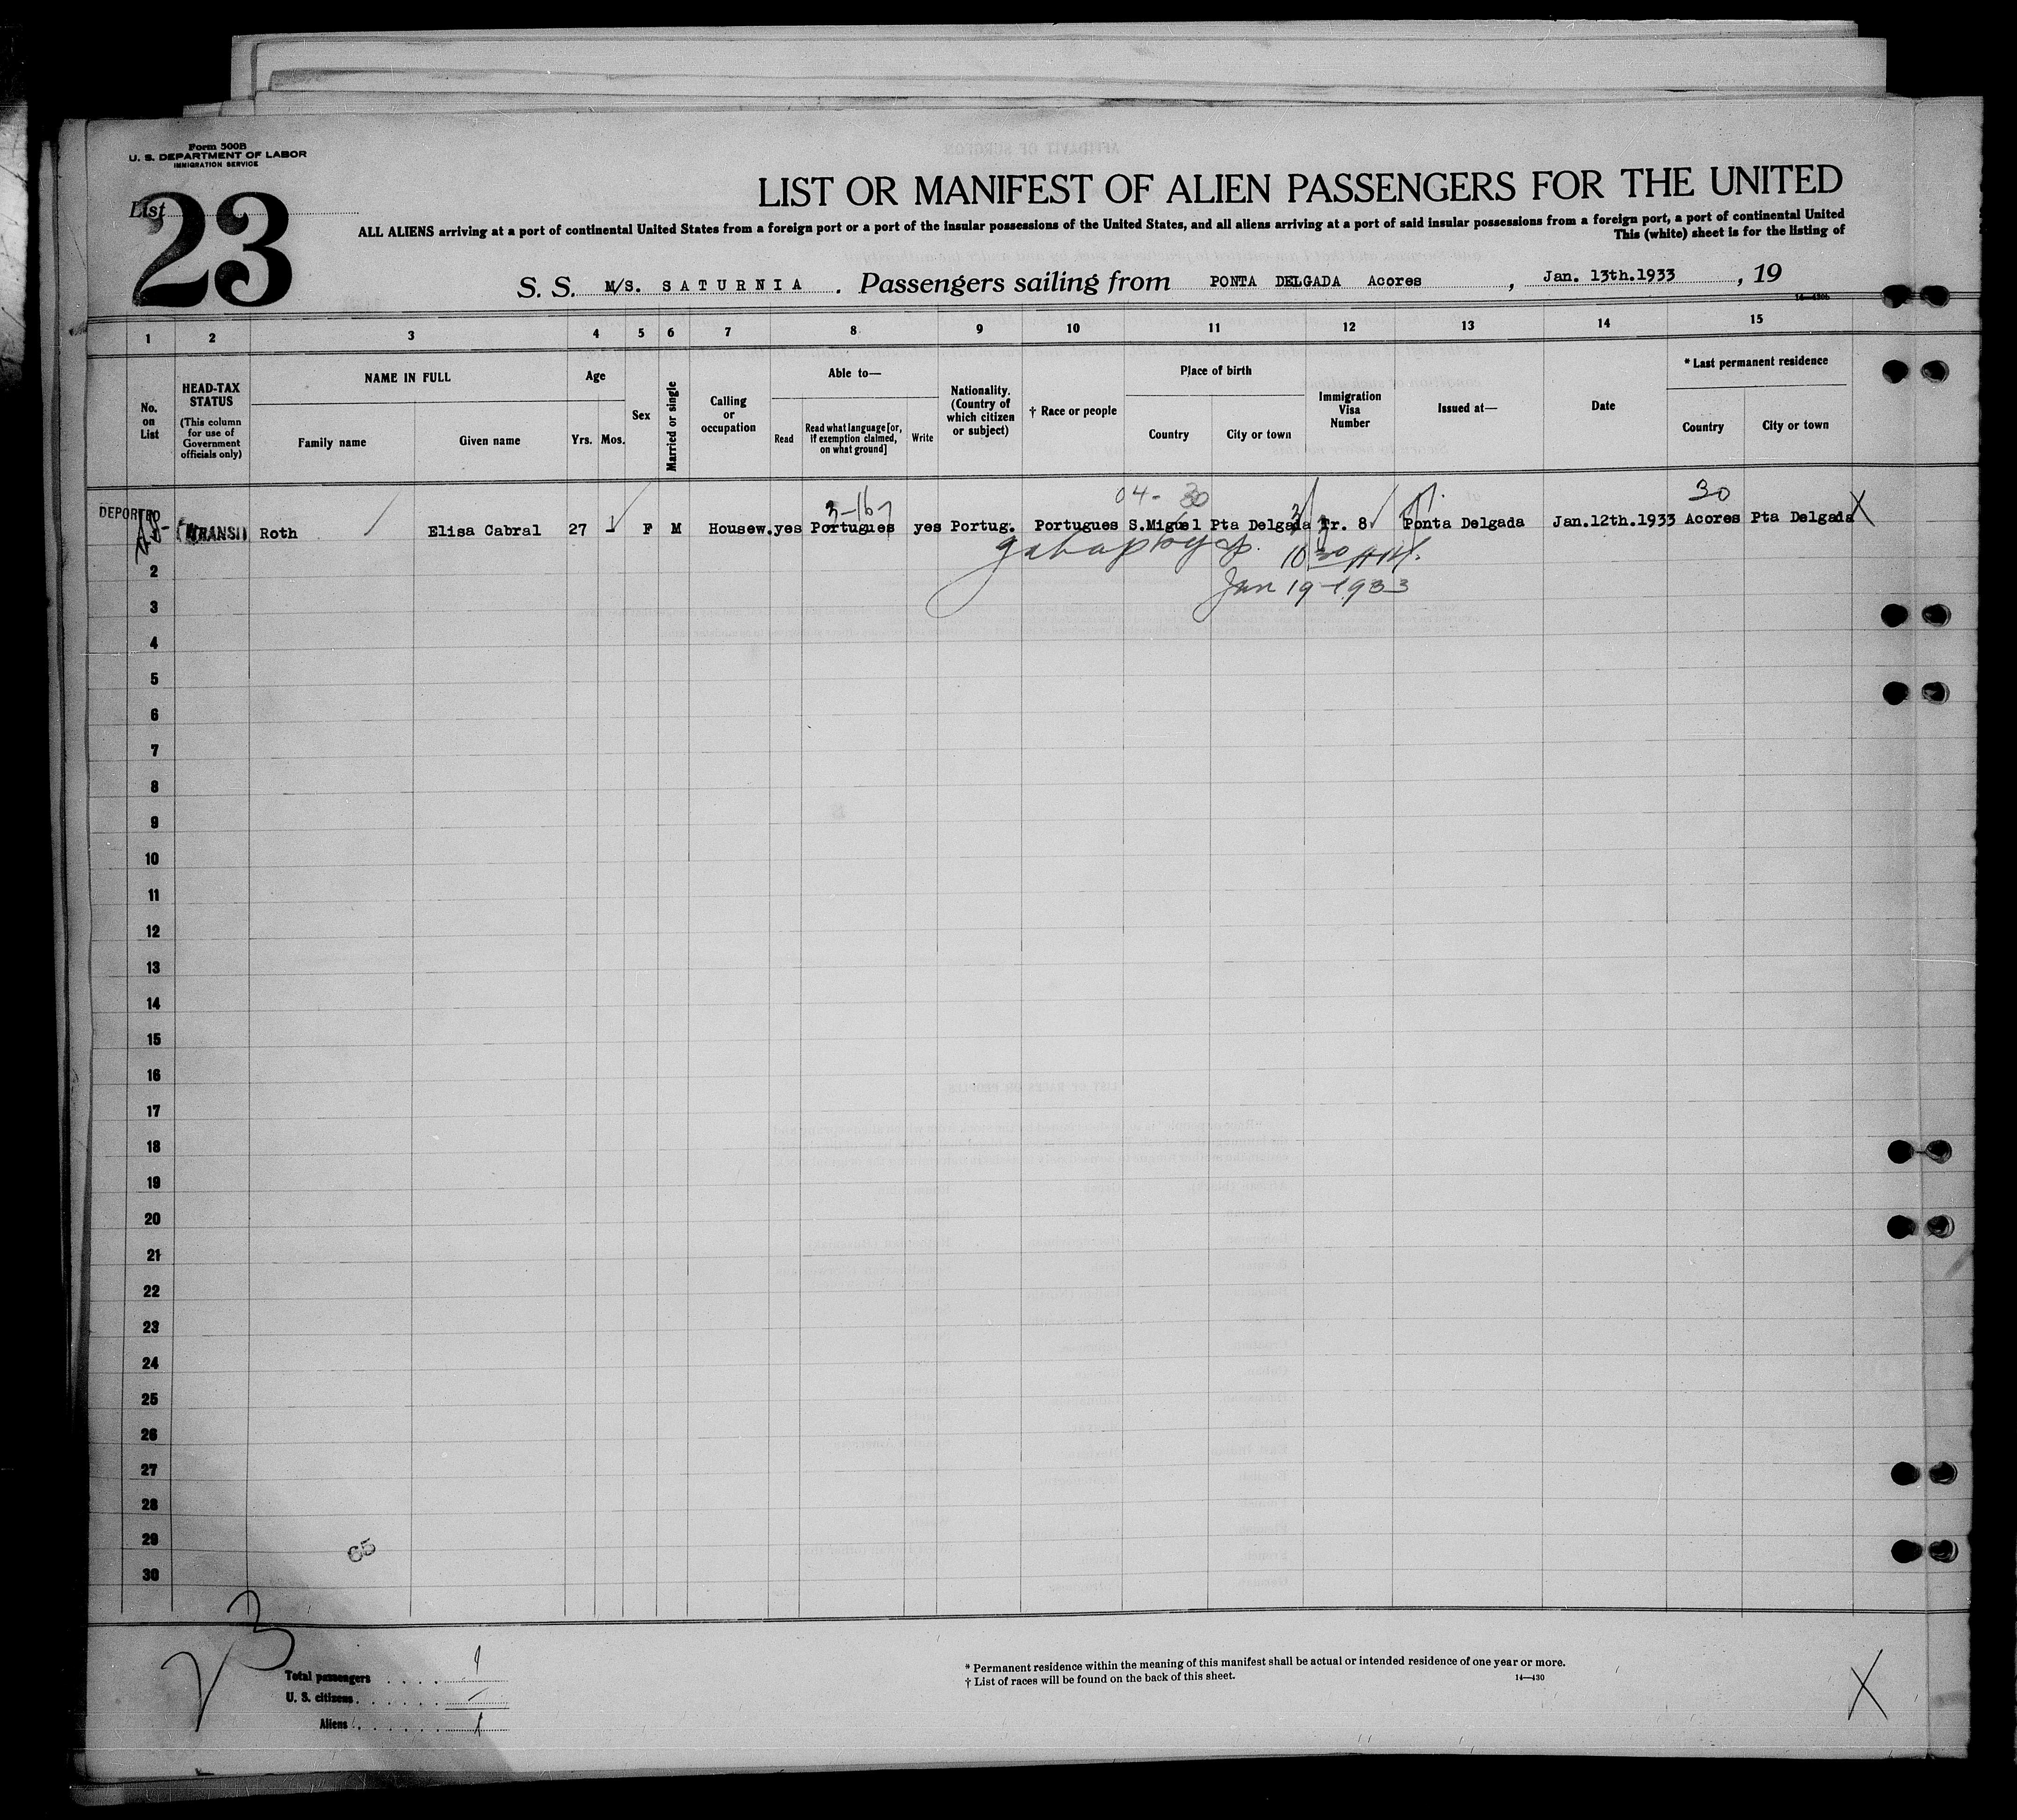 Form 500B
U. S. DEPARTMENT OF LABOR
IMMIGRATION SERVICE
List
23
LIST OR MANIFEST OF ALIEN PASSENGERS FOR THE UNITED
ALL ALIENS arriving at a port of continental United States from a foreign port or a port of the insular possessions of the United States, and all aliens arriving at a port of said insular possessions from a foreign port, a port of continental United
This (white) sheet is for the listing of
S. S. M/S. SATURNIA . Passengers sailing from PONTA DELGADA Acores , Jan. 13th.1933 , 19
1 2 3 4 5 6 7 8 9 10 11 12 13 14 15
No. on List
HEAD-TAX STATUS
(This column for use of Government officials only)
NAME IN FULL
Family name
Given name
Age
Yrs. Mos.
Sex
Married or single
Calling or occupation
Able to—
Read
Read what language [or, if exemption claimed, on what ground]
Write
Nationality. (Country of which citizen or subject)
† Race or people
Place of birth
Country
City or town
Immigration Visa Number
Issued at—
Date
* Last permanent residence
Country
City or town
04- 30
30
3-16-7
DEPORTED
TRANSIT Roth Elisa Cabral 27 F M Housew. yes Portugues yes Portug. Portugues S.Miguel Pta Delgada Tr. 8 Ponta Delgada Jan.12th.1933 Acores Pta Delgada X
10 30 AM.
Jan 19-1933
2
3
4
5
6
7
8
9
10
11
12
13
14
15
16
17
18
19
20
21
22
23
24
25
26
27
28
29
30
65
3
Total passengers 1
U. S. citizens –
Aliens 1
* Permanent residence within the meaning of this manifest shall be actual or intended residence of one year or more.
† List of races will be found on the back of this sheet.
14—430
X